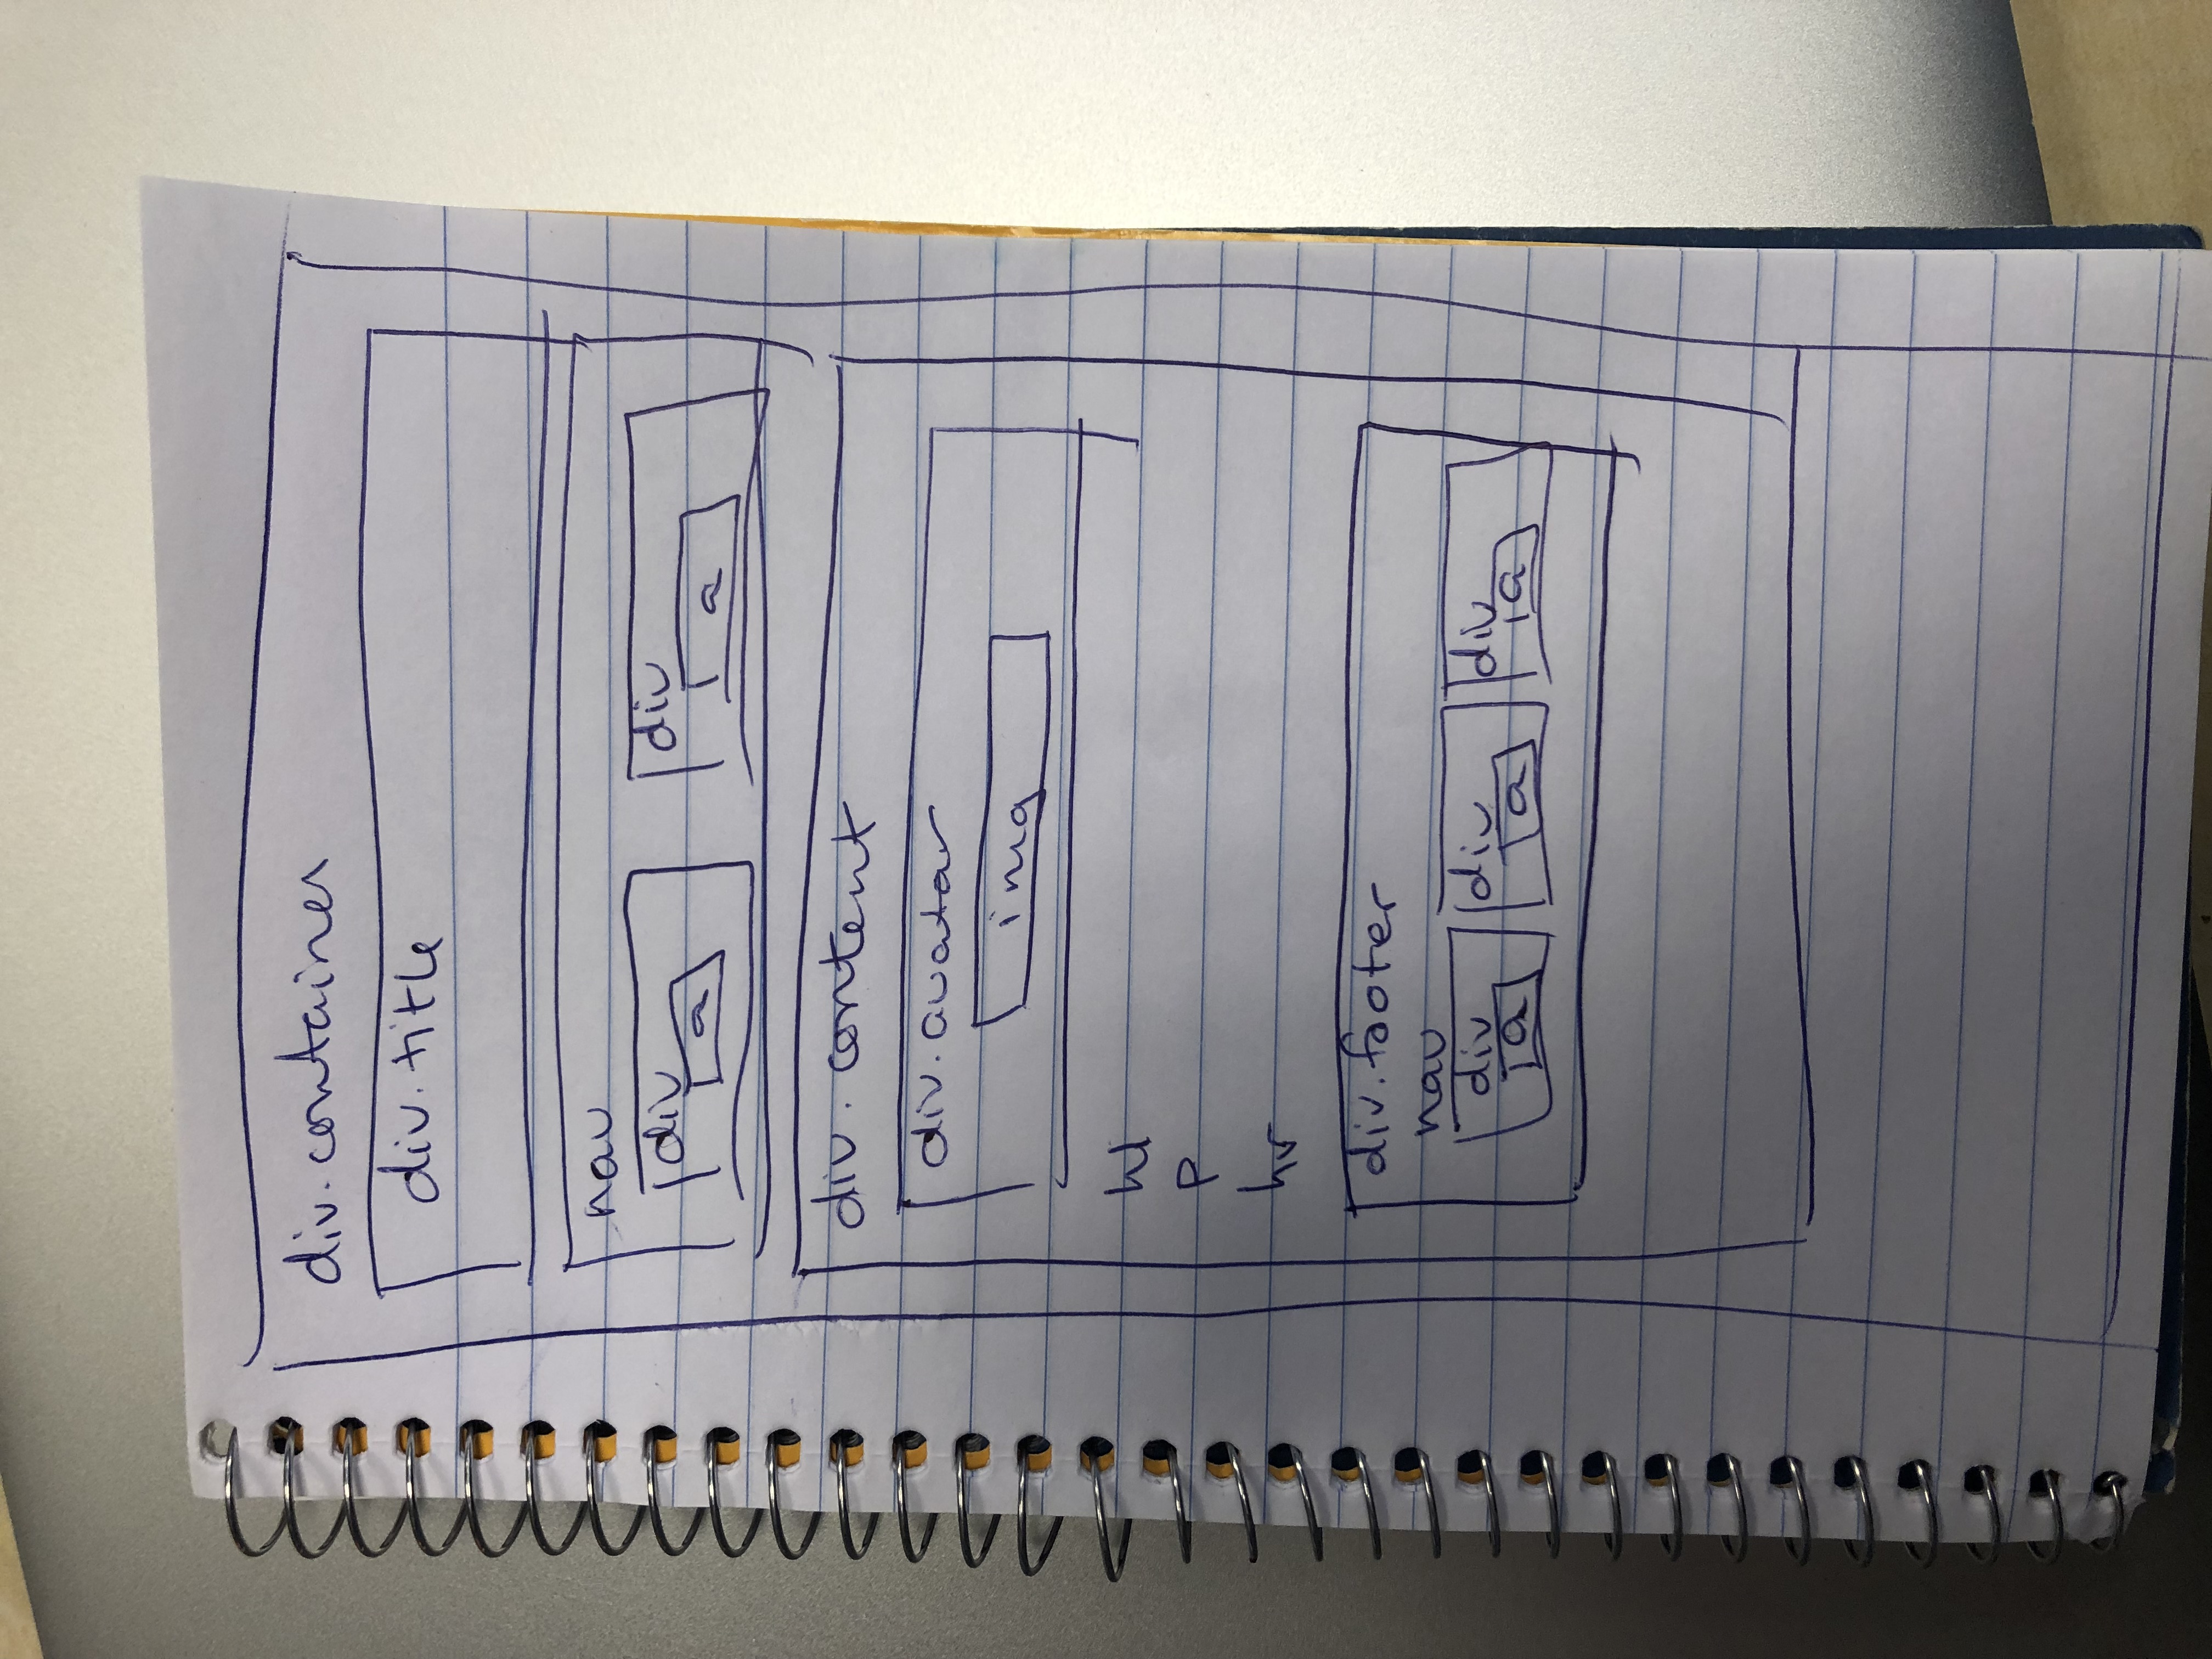 div.container
div.title
nav
div div
a a
div. content
div.avatar
img
h1
p
hr
div.footer
nav
div div div
a a a